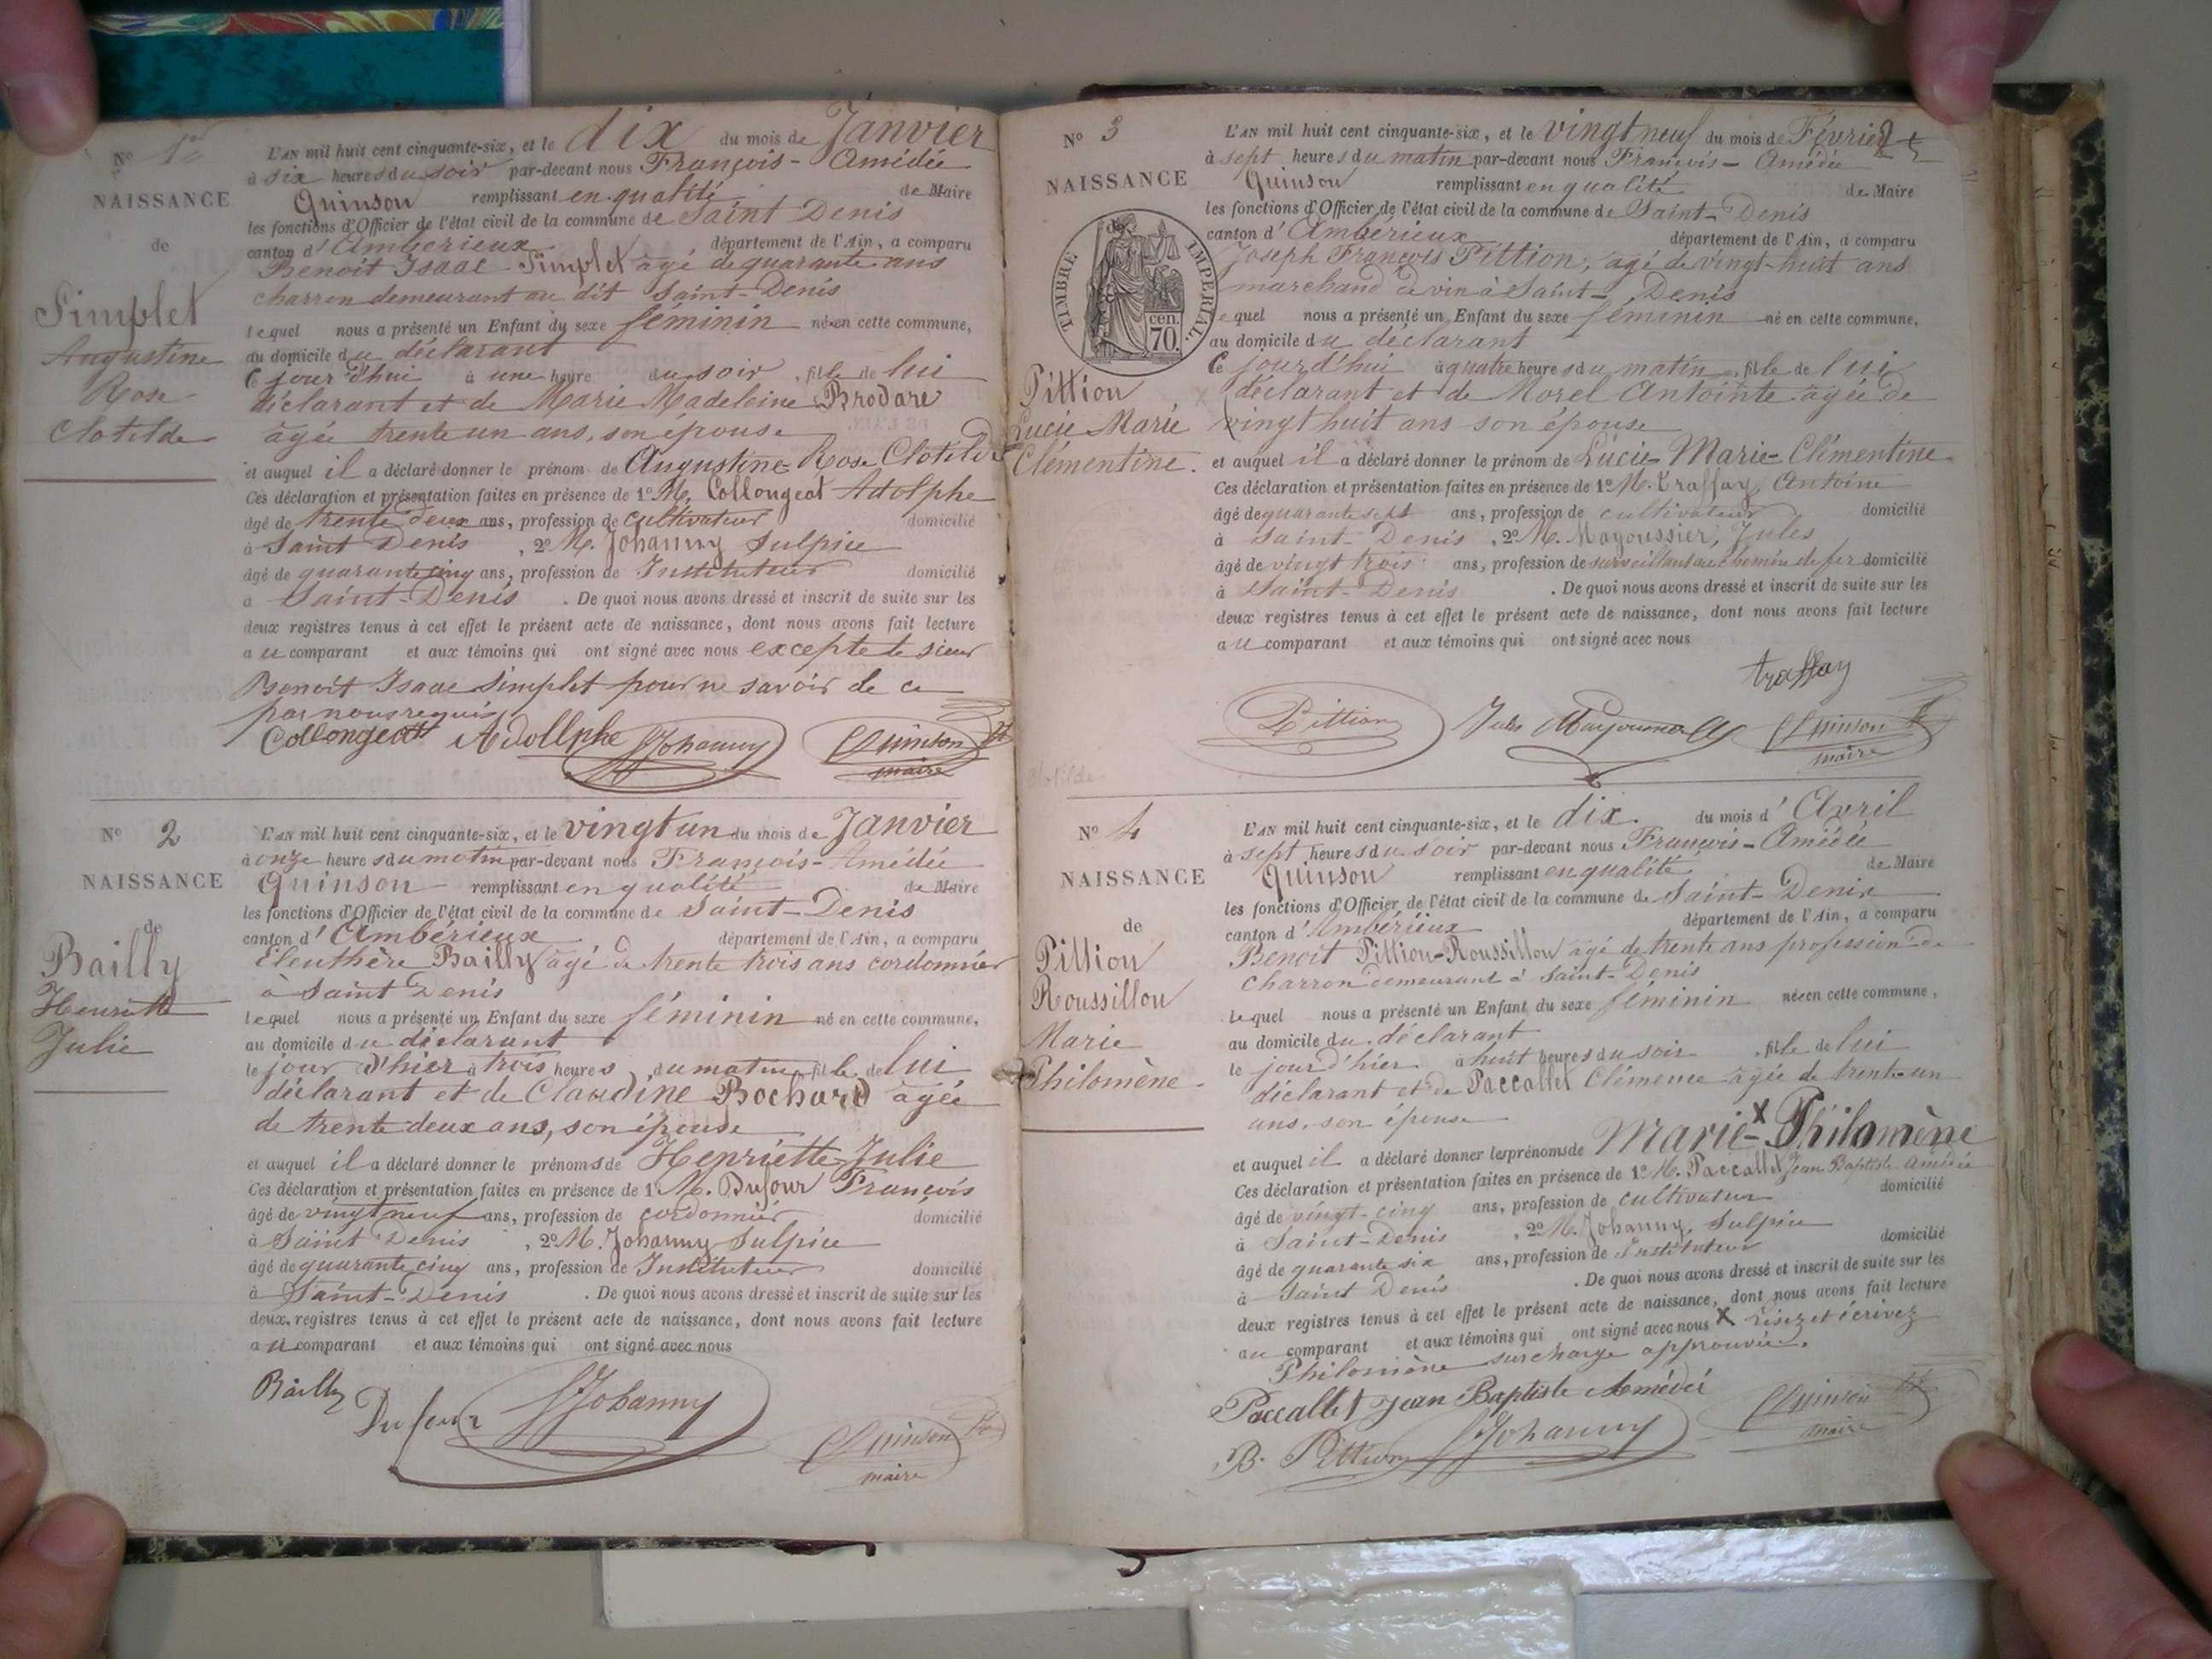 N° 1er
NAISSANCE
de
Simplet
Augustine
Rose
Clotilde
L'AN mil huit cent cinquante-six, et le dix du mois de Janvier
à six heures du soir par-devant nous François-Amédée
Quinson remplissant en qualité de Maire
les fonctions d'Officier de l'état civil de la commune de Saint Denis
canton d'Ambérieux département de l'Ain, a comparu
Benoit Isaac Simplet âgé de quarante ans
charron demeurant au dit Saint-Denis
lequel nous a présenté un Enfant du sexe féminin né en cette commune,
au domicile du déclarant
Ce jour d'hui à une heure du soir, fille de lui
déclarant et de Marie Madeleine Brodare
âgée trente un ans, son épouse
et auquel il a déclaré donner le prénom de Augustine Rose Clotilde
Ces déclaration et présentation faites en présence de 1° M. Collongeat Adolphe
âgé de trente deux ans, profession de cultivateur domicilié
à Saint Denis, 2° M. Johanny Sulpice
âgé de quarante cinq ans, profession de Instituteur domicilié
à Saint-Denis. De quoi nous avons dressé et inscrit de suite sur les
deux registres tenus à cet effet le présent acte de naissance, dont nous avons fait lecture
au comparant et aux témoins qui ont signé avec nous excepté le sieur
Benoit Isaac Simplet pour ne savoir de ce
par nous requis
Collongeatt Adollphe Johanny Quinson
maire
N° 2
NAISSANCE
de
Bailly
Henriette
Julie
L'AN mil huit cent cinquante-six, et le vingt un du mois de Janvier
à onze heures du matin par-devant nous François-Amédée
Quinson remplissant en qualité de Maire
les fonctions d'Officier de l'état civil de la commune de Saint-Denis
canton d'Ambérieux département de l'Ain, a comparu
Eleuthère Bailly âgé de trente trois ans cordonnier
à Saint Denis
lequel nous a présenté un Enfant du sexe féminin né en cette commune,
au domicile du déclarant
le jour d'hier à trois heures du matin, fille de lui
déclarant et de Claudine Bochard âgée
de trente deux ans, son épouse
et auquel il a déclaré donner le prénoms de Henriette-Julie
Ces déclaration et présentation faites en présence de 1° M. Dufour François
âgé de vingt neuf ans, profession de cordonnier domicilié
à Saint Denis, 2° M. Johanny Sulpice
âgé de quarante cinq ans, profession de Instituteur domicilié
à Saint-Denis. De quoi nous avons dressé et inscrit de suite sur les
deux registres tenus à cet effet le présent acte de naissance, dont nous avons fait lecture
au comparant et aux témoins qui ont signé avec nous
Bailly
Dufour Johanny
Quinson
maire
N° 3
NAISSANCE
TIMBRE IMPERIAL
cen.
70.
Pittion
Lucie Marie
Clémentine.
L'AN mil huit cent cinquante-six, et le vingt neuf du mois de Février
à sept heures du matin par-devant nous François-Amédée
Quinson remplissant en qualité de Maire
les fonctions d'Officier de l'état civil de la commune de Saint-Denis
canton d'Ambérieux département de l'Ain, a comparu
Joseph François Pittion, âgé de vingt-huit ans
marchand de vin à Saint-Denis
equel nous a présenté un Enfant du sexe féminin né en cette commune,
au domicile du déclarant
Ce jourd'hui à quatre heures du matin, fille de lui
déclarant et de Morel Antointe âgée de
vingt huit ans son épouse
et auquel il a déclaré donner le prénom de Lucie-Marie-Clémentine
Ces déclaration et présentation faites en présence de 1° M. Traffay, Antoine
âgé de quarante sept ans, profession de cultivateur domicilié
à Saint-Denis, 2° M. Mayoussier, Jules
âgé de vingt trois ans, profession de surveillant au chemin de fer domicilié
à Saint-Denis. De quoi nous avons dressé et inscrit de suite sur les
deux registres tenus à cet effet le présent acte de naissance, dont nous avons fait lecture
au comparant et aux témoins qui ont signé avec nous
traffay
Pittion Jules Quinson
maire
N° 4
NAISSANCE
de
Pittion
Roussillon
Marie
Philomène
L'AN mil huit cent cinquante-six, et le dix du mois d'Avril
à sept heures du soir par-devant nous François-Amédée
Quinson remplissant en qualité de Maire
les fonctions d'Officier de l'état civil de la commune de Saint-Denis
canton d'Ambérieux département de l'Ain, a comparu
Benoit Pittion-Roussillon âgé de trente ans profession de
charron demeurant à Saint-Denis
lequel nous a présenté un Enfant du sexe féminin né en cette commune,
au domicile du déclarant
le jour d'hier à huit heures du soir, fille de lui
déclarant et de Paccallet Clémence âgée de trente-un
ans, son épouse
et auquel il a déclaré donner les prénoms de Marie-X Philomène
Ces déclaration et présentation faites en présence de 1° M. Paccallet Jean Baptiste Amédée
âgé de vingt-cinq ans, profession de cultivateur domicilié
à Saint-Denis, 2° M. Johanny, Sulpice
âgé de quarante six ans, profession de Instituteur domicilié
à Saint Denis. De quoi nous avons dressé et inscrit de suite sur les
deux registres tenus à cet effet le présent acte de naissance, dont nous avons fait lecture
au comparant et aux témoins qui ont signé avec nous X Lisez et écrivez
Philomène surcharge approuvée.
Paccallet Jean Baptiste Amédéé Quinson
maire
B. Pittion Johanny